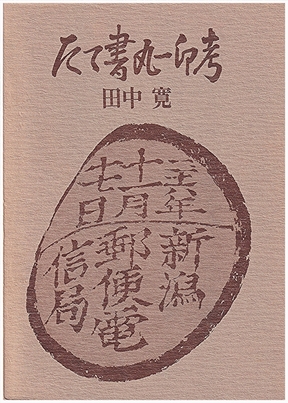 たて書丸一印考
田中 寛
二六年
十一月
七日
新潟
郵便電
信局